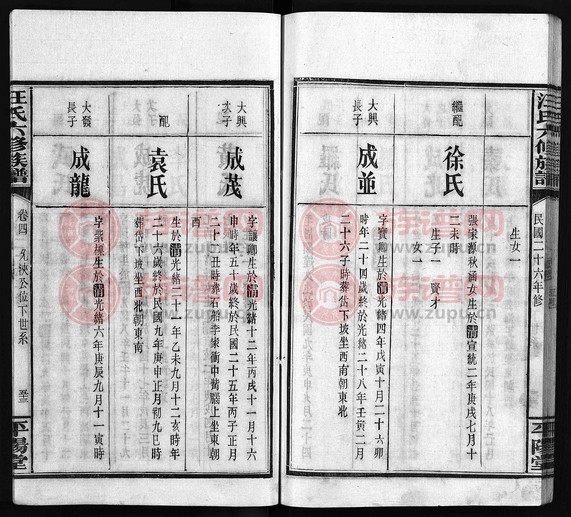 汪氏六修族譜
民國二十六年修
平陽堂
生女一
繼配
徐氏
張家源秋涵女生於清宣統二年庚戌七月十
二未時
生子一 賢才
女一
大興
長子
成並
字寶卿生於清光緒四年戊寅十月二十六卯
時年二十四歲終於光緒二十八年壬寅二月
二十六子時葬岱下坡坐西南朝東北
大興
次子
成茂
字讓卿生於清光緒十二年丙戌十一月十六
申時年五十歲終於民國二十五年丙子正月
二十一丑時葬石船李家衝中黃腦上坐東朝
西
配
袁氏
生於清光緒二十一年乙未九月十二亥時年
二十六歲終於民國九年庚申正月初九巳時
葬岱下坡坐西北朝東南
大發
長子
成龍
字紫樑生於清光緒六年庚辰九月十一寅時
汪氏六修族譜
卷四
位下世系
平陽堂
www.zupu.cn
www.zupu.cn